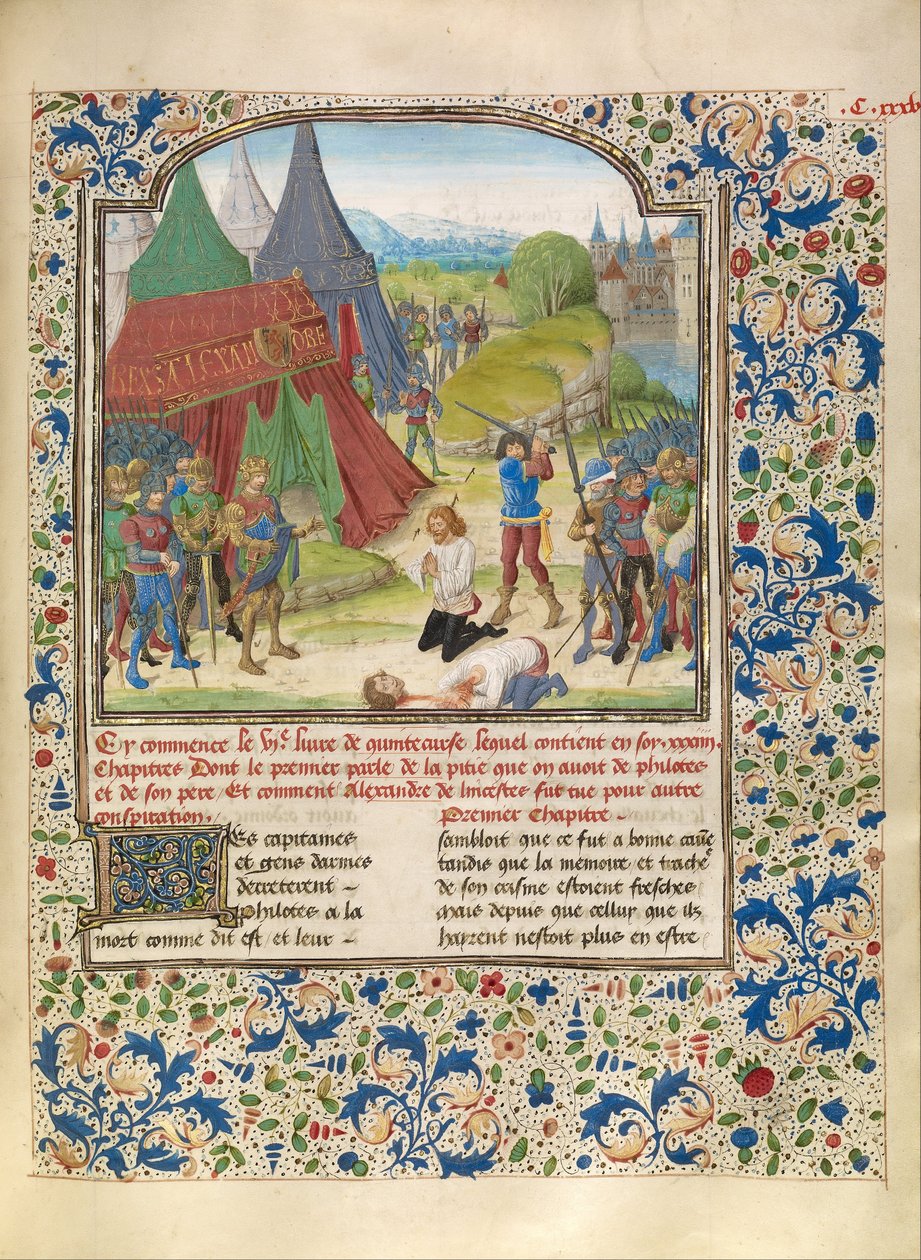 .C.xxxb
REX ST ALEXAN ORE
Cy commence le vije liure de quintecurse lequel contient en soy .xxxiiij.
Chapitres Dont le premier parle de la pitie que on auoit de philotes
et de son pere / Et comment Alexandre de lincestes fut tue pour autre
conspiration.
Premier Chapitre ~
LEs capitaines
et gens darmes
decreterent ~
Philotes a la
mort comme dit est / et leur ~
sambloit que ce fut a bonne cause
tandis que la memoire et trache
de son crisme estoient fresches
Mais depuis que celluy que ilz
hayrent nestoit plus en estre